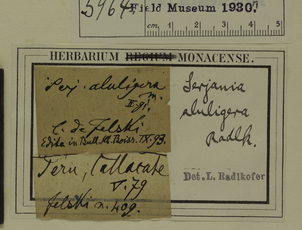 5964
Field Museum 1930.
cm, 1 2 3 4
HERBARIUM REGIUM MONACENSE.
Serj. aluligera m.
C. de Jelski
Edita in Bull. Hb. Boiss. IX. 93.
Peru; Callacate
V. 79
Jelski n. 409.
Serjania
aluligera
Radlk.
Det. L. Radlkofer